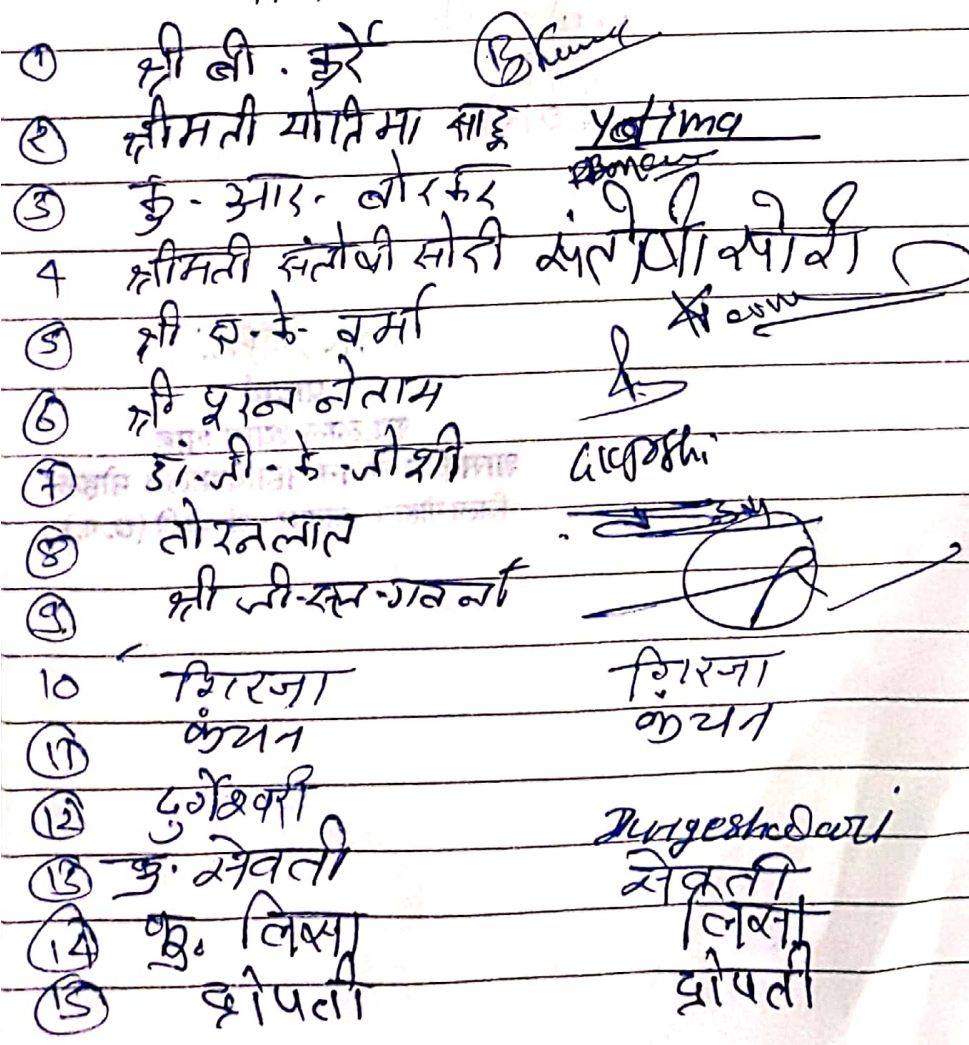 ① श्री बी. कुर्रे
② श्रीमती योतिमा साहू Yotima
③ कु. आर. बोरकर
4 श्रीमती संतोषी सोरी संतोषी सोरी
⑤ श्री के. वर्मा
⑥ श्री पूरन नेताम
⑦ डॉ. जी. के. जोशी GKJoshi
⑧ तोरनलाल
⑨ श्री जी.
10 गिरजा गिरजा
⑪ कंचन कंचन
⑫ दुर्गेश्वरी Durgeshwari
⑬ कु. सेवती सेवती
⑭ कु. लिसा लिसा
⑮ द्रोपती द्रोपती